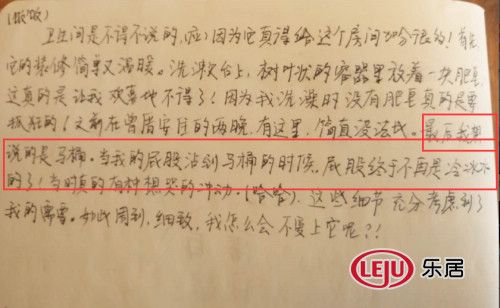 (版版)
卫生间是不得不说的,(应)因为它真得给这个房间加分很多!首先
它的装修简单又温暖。洗漱台上,树叶状的容器里放着一块肥皂
这真的是让我欢喜地不得了!因为我洗澡时没有肥皂真的是要
抓狂的!之前在曾厝安住的两晚,有这里,简直没法找。最后我想
说的是马桶。当我的屁股沾到马桶的时候,屁股终于不再是冷冰冰
的了!当时真的有种想哭的冲动.(哈哈).这些细节充分考虑到了
我的需要。如此周到,细致,我怎么会不爱上它呢?!
LEJU 乐居